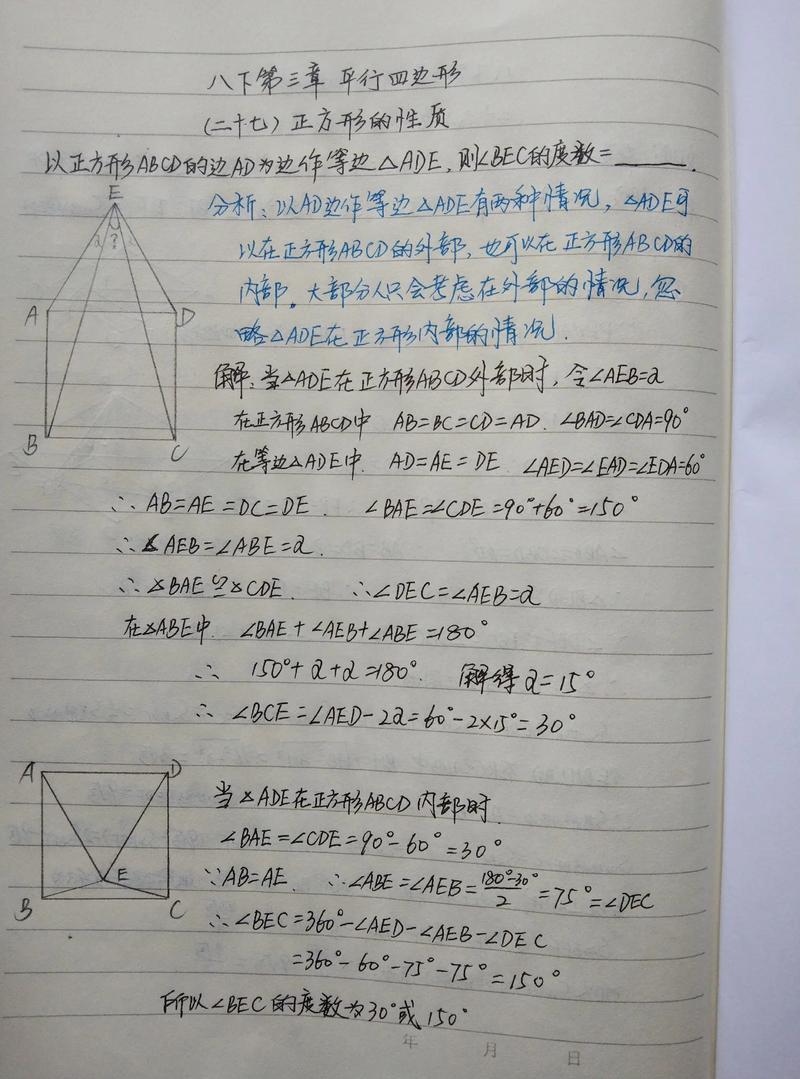 八下第三章 平行四边形
(二十七) 正方形的性质
以正方形ABCD的边AD为边作等边△ADE, 则∠BEC的度数=______.
分析: 以AD边作等边△ADE有两种情况, △ADE可
以在正方形ABCD的外部, 也可以在正方形ABCD的
内部. 大部分人只会考虑在外部的情况, 忽
略△ADE在正方形内部的情况.
E
α ? α
A D
B C
解: 当△ADE在正方形ABCD外部时, 令∠AEB=α
在正方形ABCD中 AB=BC=CD=AD. ∠BAD=∠CDA=90°
在等边△ADE中. AD=AE=DE ∠AED=∠EAD=∠EDA=60°
∴ AB=AE=DC=DE. ∠BAE=∠CDE=90°+60°=150°
∴∠AEB=∠ABE=α.
∴△BAE≌△CDE. ∴∠DEC=∠AEB=α
在△ABE中. ∠BAE+∠AEB+∠ABE=180°
∴ 150°+α+α=180°. 解得α=15°
∴ ∠BCE=∠AED-2α=60°-2×15°=30°
A D
E
B C
当△ADE在正方形ABCD内部时.
∠BAE=∠CDE=90°-60°=30°
∵AB=AE. ∴∠ABE=∠AEB=(180°-30°)/2=75°=∠DEC
∴∠BEC=360°-∠AED-∠AEB-∠DEC
=360°-60°-75°-75°=150°
所以∠BEC的度数为30°或150°
年 月 日